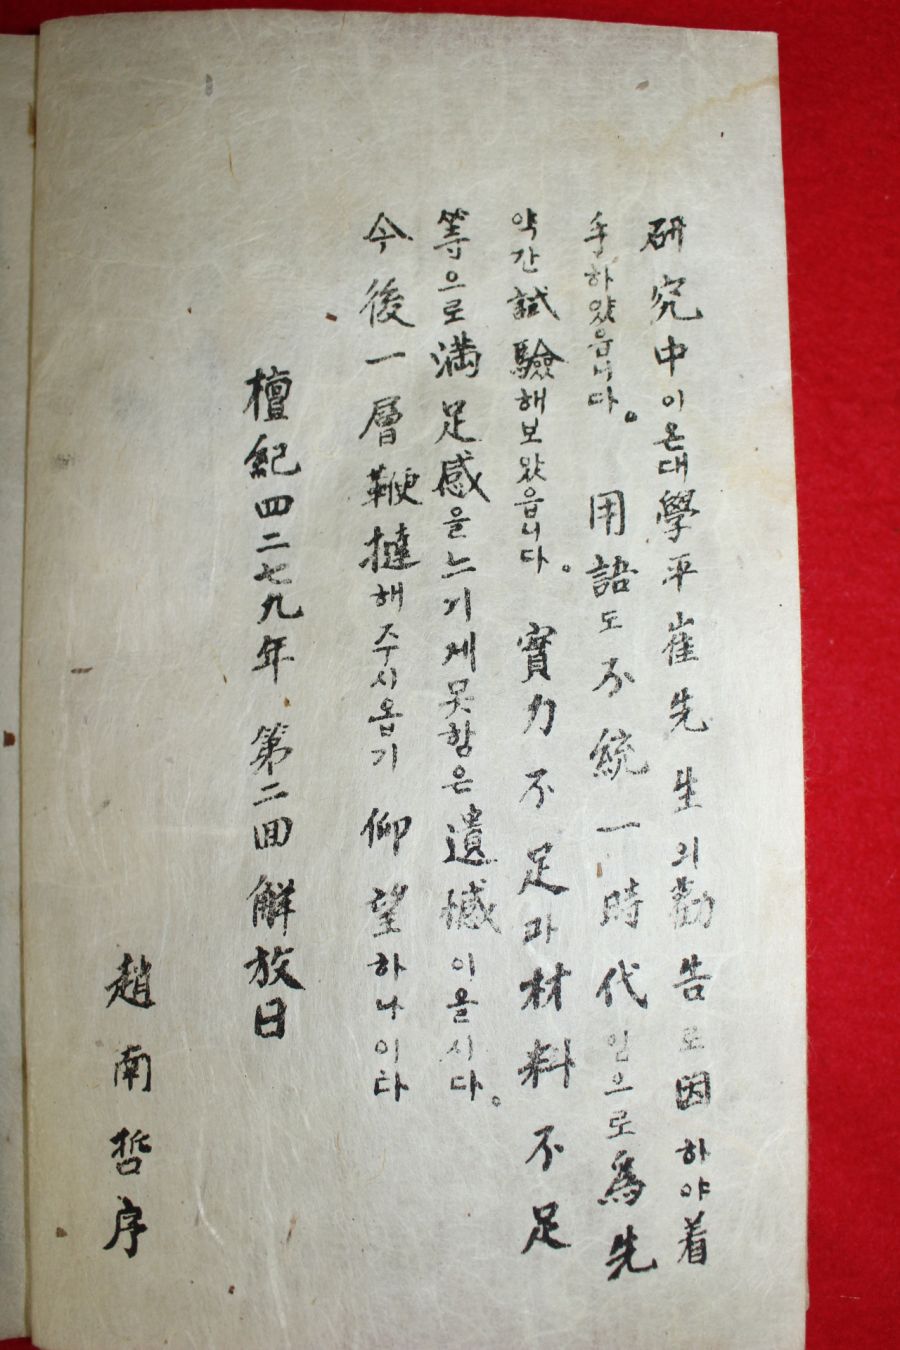 研究中이온대學平崔先生의勸告로因하야着
手하얐읍니다。 用語도不統一時代임으로爲先
약간試驗해보왔읍니다。 實力不足과材料不足
等으로満足感을느기게못함은遺憾이올시다。
今後一層鞭撻해주시옵기仰望하나이다
檀紀四二七九年 第二回解放日
趙南哲序